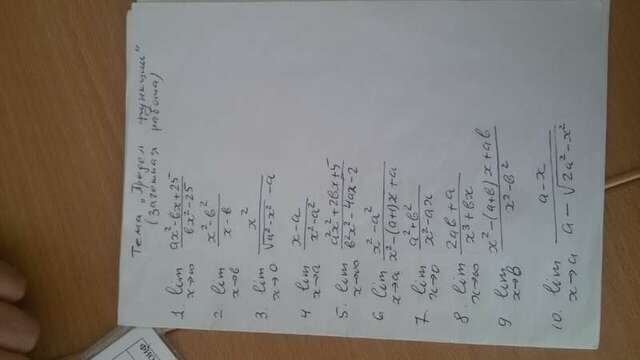 Тема „Предел функции"
(Зачётная работа)
1. lim x→∞ (ax²-bx+25)/(bx²-25)
2. lim x→b (x²-b²)/(x-b)
3. lim x→0 x²/(√(a²-x²)-a)
4. lim x→a (x-a)/(x²-a²)
5. lim x→∞ (ax²+2bx+5)/(bx²-4ax-2)
6. lim x→a (x²-a²)/(x²-(a+1)x+a)
7. lim x→∞ (a²+b²)/(x²-ax)
8. lim x→∞ (2ab+a)/(x³+bx)
9. lim x→b (x²-(a+b)x+ab)/(x²-b²)
10. lim x→a (a-x)/(a-√(2a²-x²))